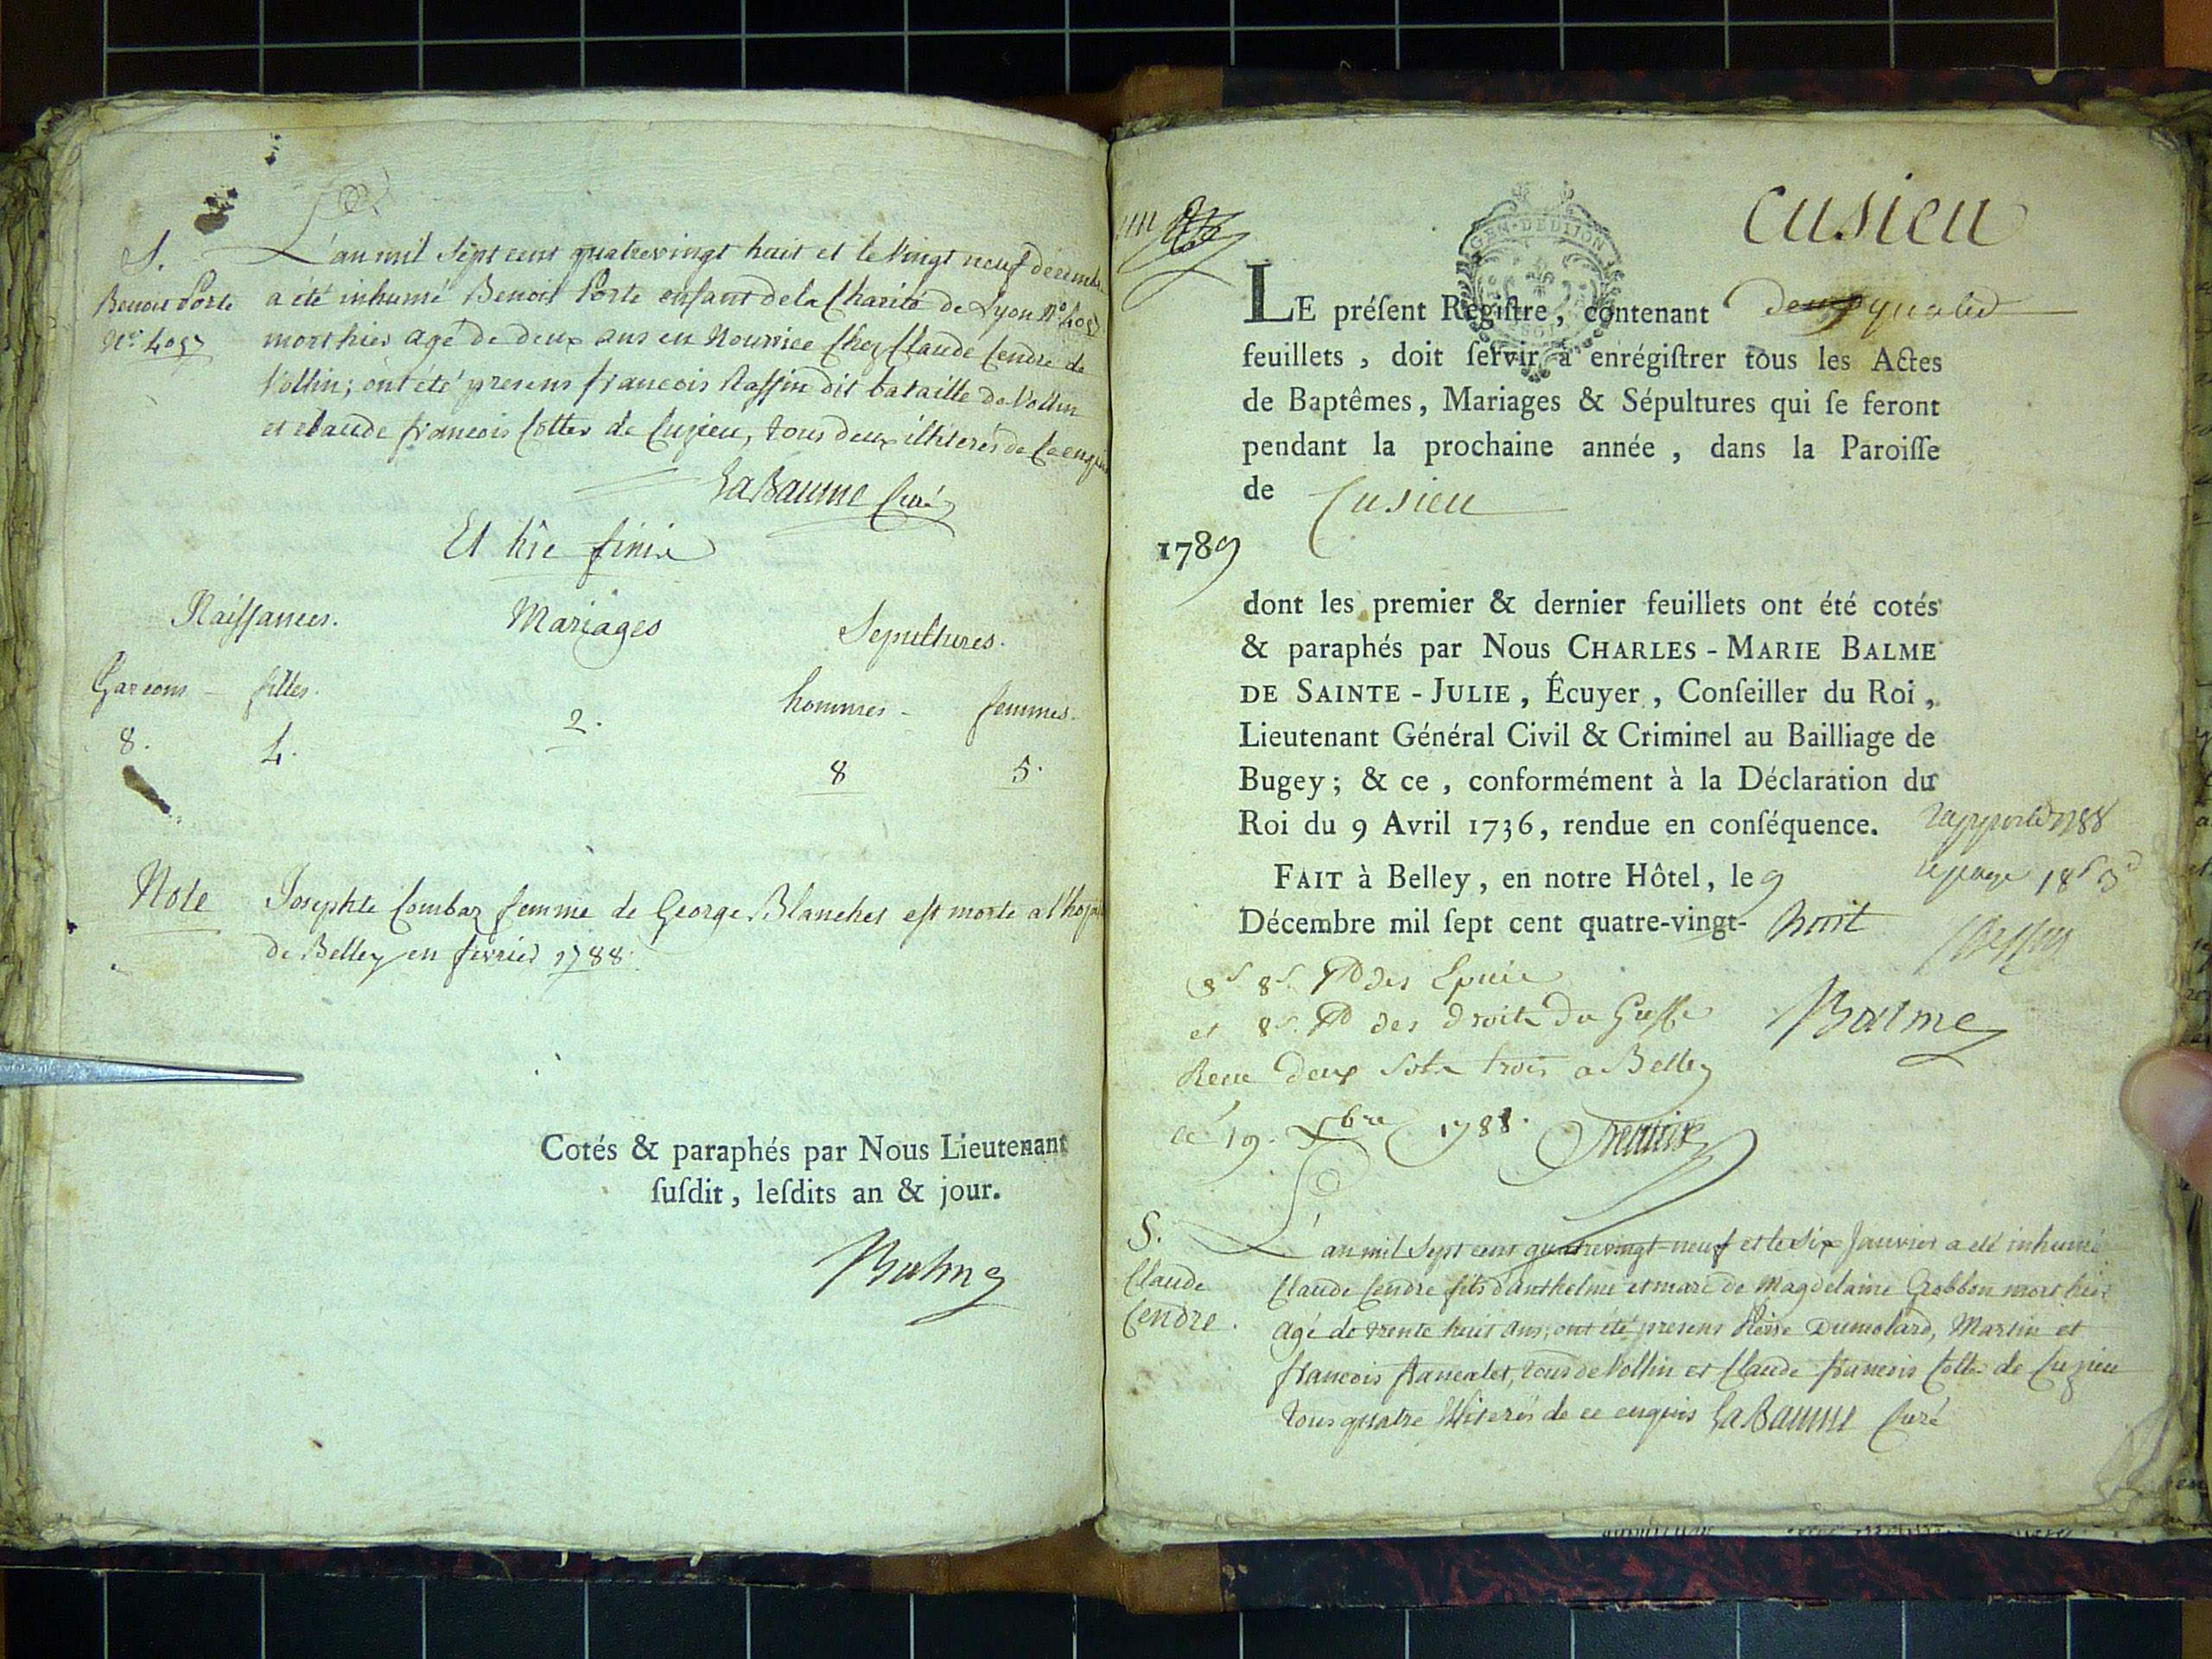 S.
Benoit Porte
N° 4057
L'an mil sept cent quatrevingt huit et le vingt neuf decemb
a été inhumé Benoit Porte enfant de la Charité de Lyon N° 4057
mort hier agé de deux ans en Nourrice chez Claude Cendre de
Vollin; ont été presens francois Raffin dit bataille de Vollin
et claude francois Cotter de Cuzieu, tous deux illiterés de ce enquis
LaBaume Curé
Et hic finis
Naissances. Mariages Sepultures.
Garcons - filles. hommes - femmes.
8. 4. 2. 8 5.
Note Josephte Combaz femme de George Blanchet est morte a l'hop
de Belley en fevrier 1788.
Cotés & paraphés par Nous Lieutenant
ſuſdit, leſdits an & jour.
Balme
un
cusieu
GEN-DE DIJON
LE préſent Regiſtre, contenant
feuillets, doit ſervir à enrégiſtrer tous les Actes
de Baptêmes, Mariages & Sépultures qui ſe feront
pendant la prochaine année, dans la Paroiſſe
de Cusieu
1789
dont les premier & dernier feuillets ont été cotés
& paraphés par Nous CHARLES-MARIE BALME
DE SAINTE-JULIE, Écuyer, Conſeiller du Roi,
Lieutenant Général Civil & Criminel au Bailliage de
Bugey; & ce, conformément à la Déclaration du
Roi du 9 Avril 1736, rendue en conſéquence.
1788
FAIT à Belley, en notre Hôtel, le 9
Décembre mil ſept cent quatre-vingt- huit
8s 8s des Epice
et 8s des droits du Greffe
Balme
Receu deux sols trois a Belley
le 19. Xbre 1788.
S.
Claude
Cendre.
L'an mil sept cent quatrevingt-neuf et le six Janvier a été inhumé
Claude Cendre fils d'anthelme et mari de Magdelaine Grobbon mort hier
agé de trente huit ans; ont été presens Pierre Dumolard, Martin et
francois francalet, tous de Vollin et Claude francois Cotte de Cuzieu
tous quatre illiterés de ce enquis LaBaume Curé